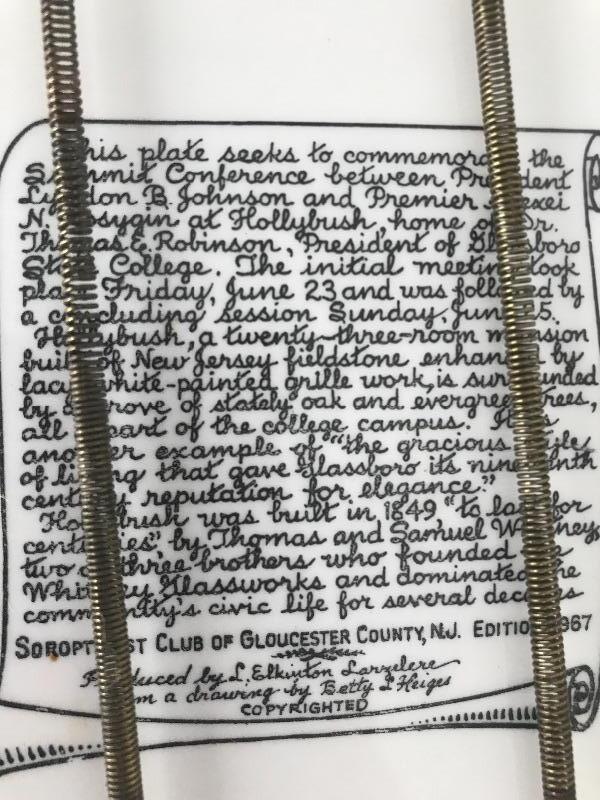 This plate seeks to commemorate the
Summit Conference between President
Lyndon B. Johnson and Premier Alexei
N. Kosygin at Hollybush, home of Dr.
Thomas E. Robinson, President of Glassboro
State College. The initial meeting took
place Friday, June 23 and was followed by
a concluding session Sunday, June 25.
Hollybush, a twenty-three-room mansion
built of New Jersey fieldstone enhanced by
lacy white-painted grille work, is surrounded
by a grove of stately oak and evergreen trees,
all a part of the college campus. It is
another example of "the gracious style
of living that gave Glassboro its nineteenth
century reputation for elegance."
Hollybush was built in 1849, "to last for
centuries", by Thomas and Samuel Whitney,
two of three brothers who founded the
Whitney Glassworks and dominated the
community's civic life for several decades
SOROPTIMIST CLUB OF GLOUCESTER COUNTY, N.J. EDITION 1967
Produced by L. Elkinton Larzelere
from a drawing by Betty L Heiges
COPYRIGHTED